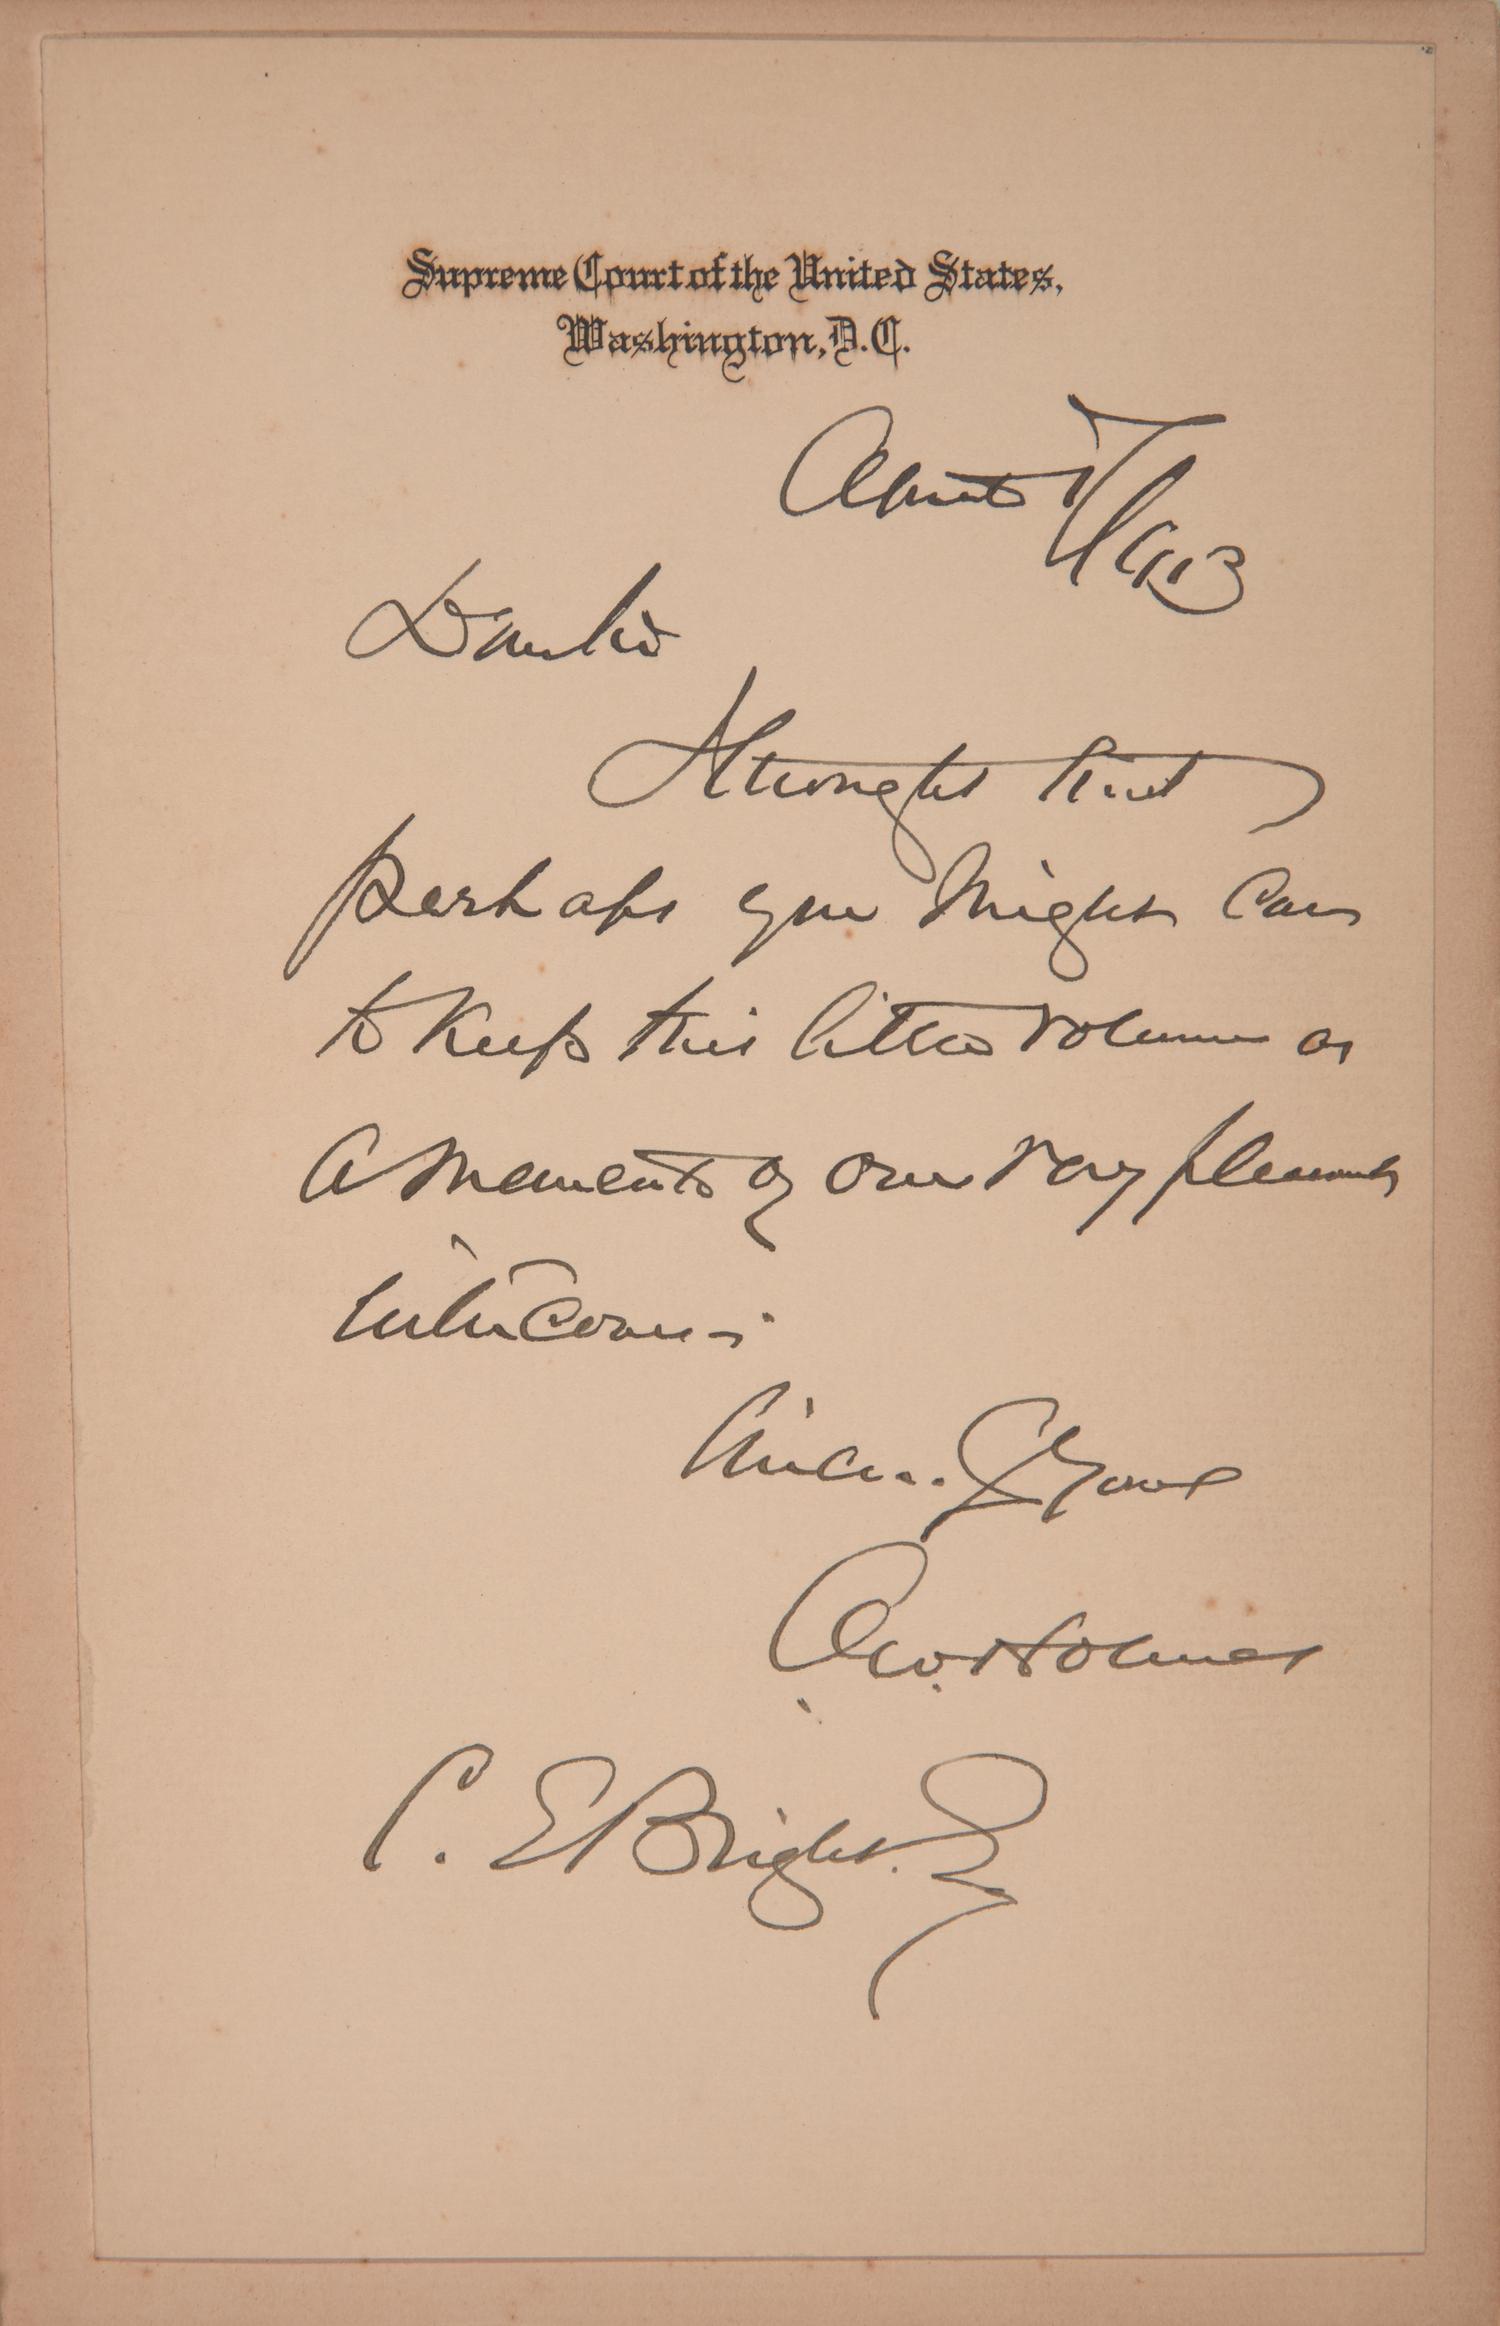 Supreme Court of the United States,
Washington, D.C.
1913
Dear Sir
I thought that
perhaps you might care
to keep this little volume as
a memento of our very pleasant
intercourse.
Yours
O. W. Holmes
C. E. Bright.